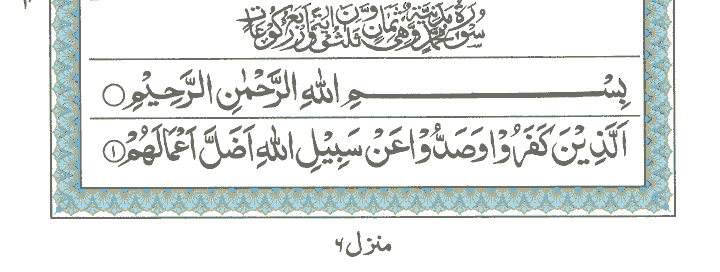 سُوْرَةُ مُحَمَّدٍ مَّدَنِيَّةٌ وَّهِيَ ثَمَانٍ وَّثَلٰثُوْنَ اٰيَةً وَّاَرْبَعُ رُكُوْعَاتٍ
بِسْمِ اللّٰهِ الرَّحْمٰنِ الرَّحِيْمِ
اَلَّذِيْنَ كَفَرُوْا وَصَدُّوْا عَنْ سَبِيْلِ اللّٰهِ اَضَلَّ اَعْمَالَهُمْ ۝۱
منزل ۶